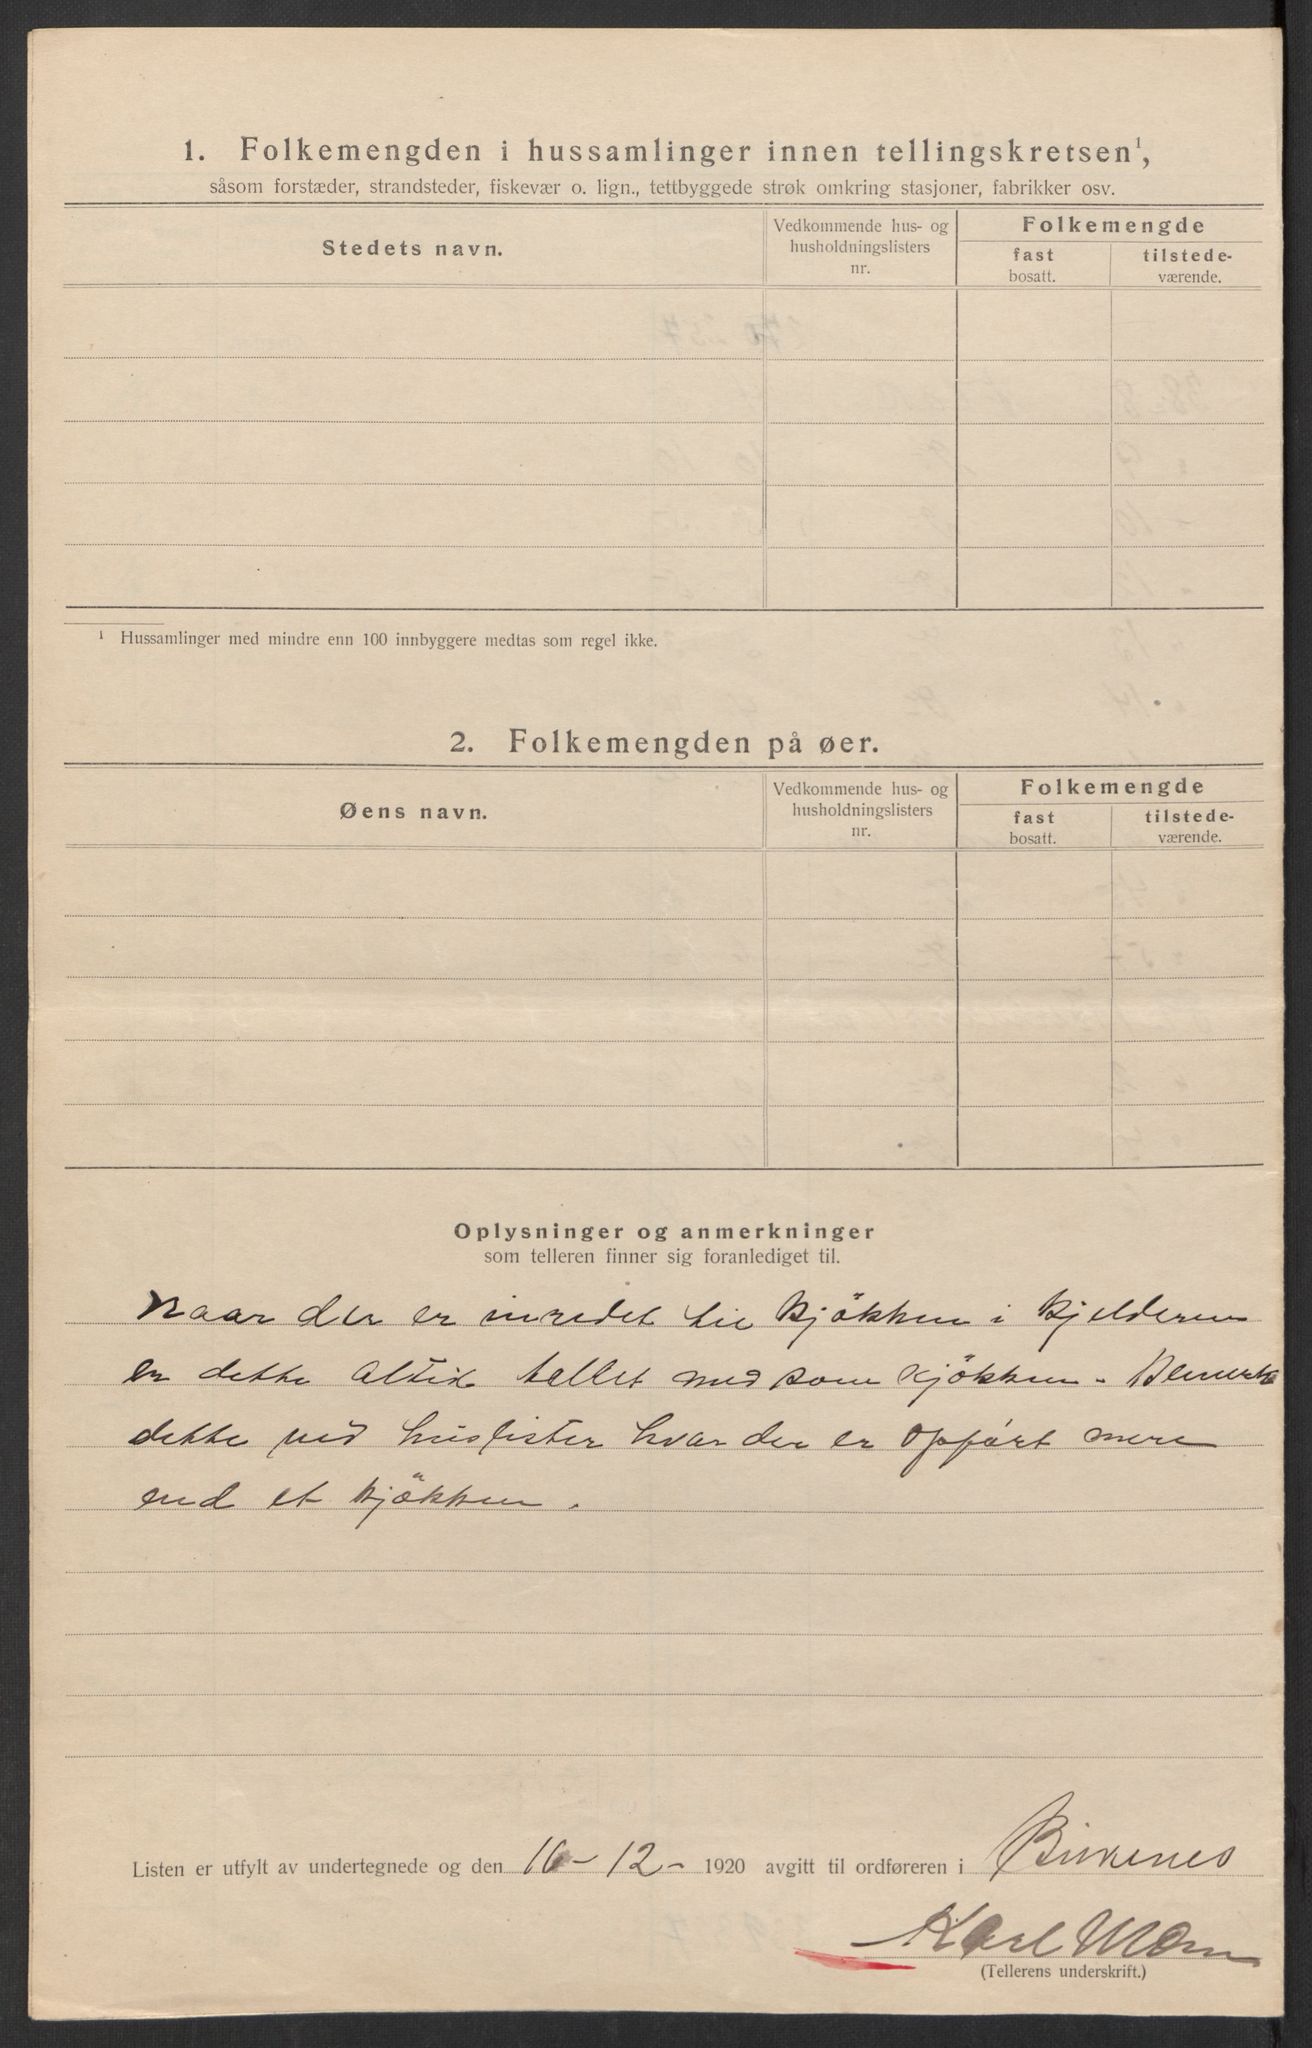 1. Folkemengden i hussamlinger innen tellingskretsen¹,
såsom forstæder, strandsteder, fiskevær o. lign., tettbyggede strøk omkring stasjoner, fabrikker osv.
Stedets navn.
Vedkommende hus- og
husholdningslisters
nr.
Folkemengde
fast
bosatt.
tilstede-
værende.
¹ Hussamlinger med mindre enn 100 innbyggere medtas som regel ikke.
2. Folkemengden på øer.
Øens navn.
Vedkommende hus- og
husholdningslisters
nr.
Folkemengde
fast
bosatt.
tilstede-
værende.
Oplysninger og anmerkninger
som telleren finner sig foranlediget til.
Naar der er inredet til kjökken i kjelderen
er dette altid tallet med som kjökken. Bemerk
dette ved huslister hvor der er opført mere
end et kjökken.
Listen er utfylt av undertegnede og den 16-12- 1920 avgitt til ordføreren i Birkenes
Karl
(Tellerens underskrift.)